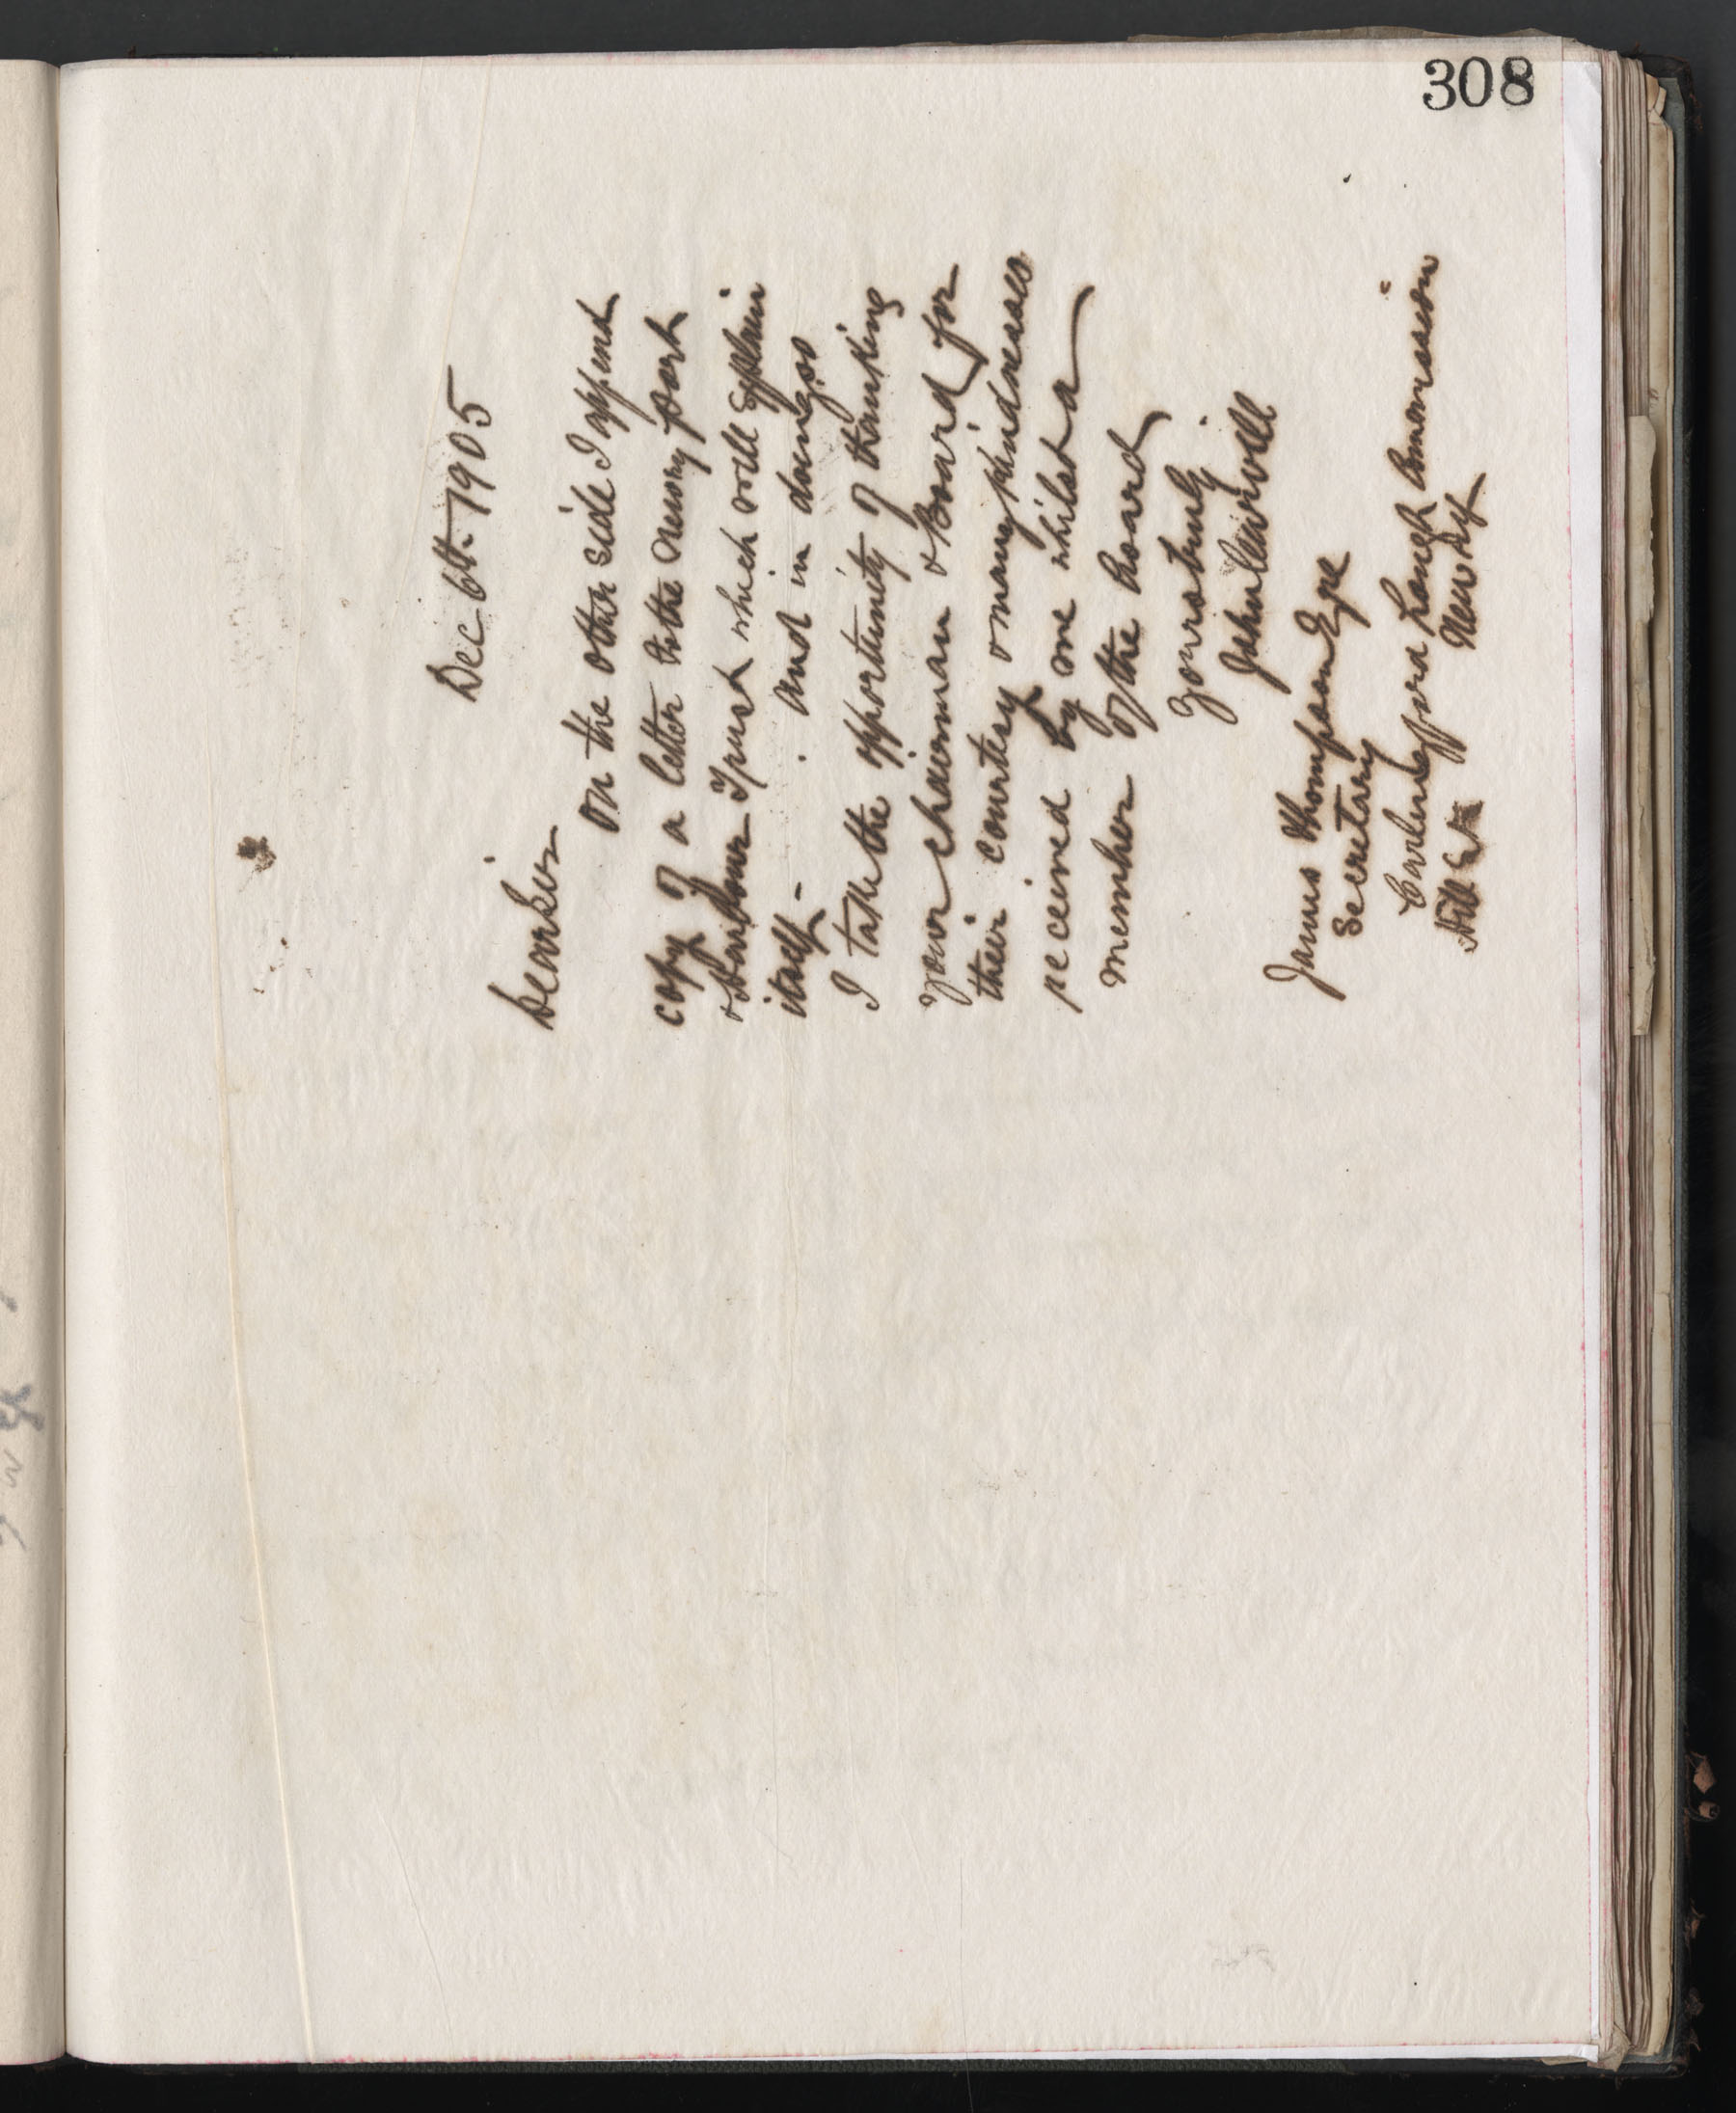 Dec 6th 1905
Dear Sir
On the other side I append
copy of a letter to the Newry Port
& Harbour Trust which will explain
itself - . And in doing so
I take the opportunity of thanking
your Chairman & Board for
their courtesy & many kindnesses
received by me whilst a
member of the board
Yours truly
John Carvill
James Thompson Esqe
Secretary
Carlingford Lough Commission
Hill St Newry
308